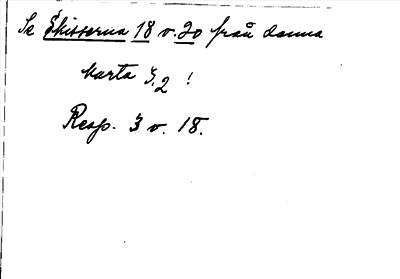 Se Skisserna 18 o. 20 från denna
karta 3,2!
Resp. 3 o. 18.